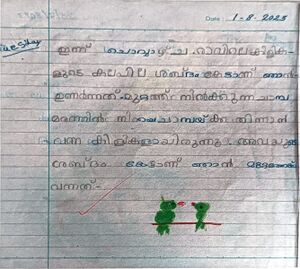 Date: 1-8-2023
Tuesday
ഇന്ന് ചൊവ്വാഴ്ച രാവിലെ കിളിക-
ളുടെ കലപില ശബ്ദം കേട്ടാണ് ഞാൻ
ഉണർന്നത്. മുറ്റത്ത് നിൽക്കുന്ന ചാമ്പ
മരത്തിൽ നിന്ന് ചാമ്പയ്ക്ക തിന്നാൻ
വന്ന കിളികളായിരുന്നു. അവയുടെ
ശബ്ദം കേട്ടാണ് ഞാൻ
വന്നത്.